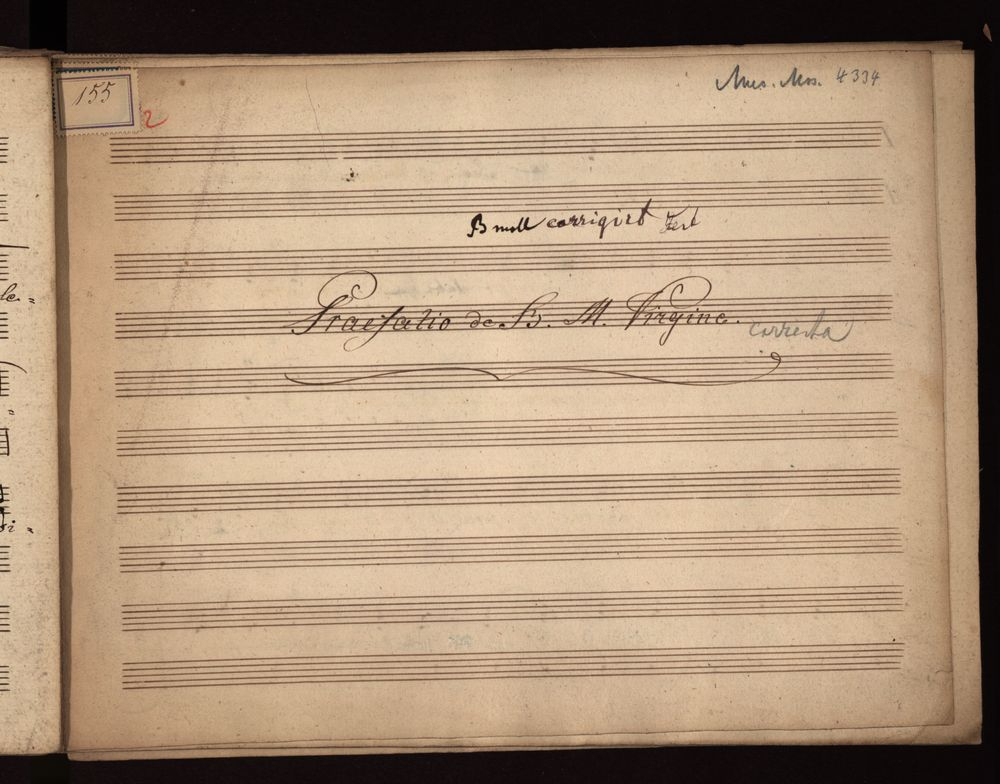 155
2
Mus. Mss. 4334
B moll corrigirt Text
Praefatio de B. M. Virgine.
correcta
le =
si =